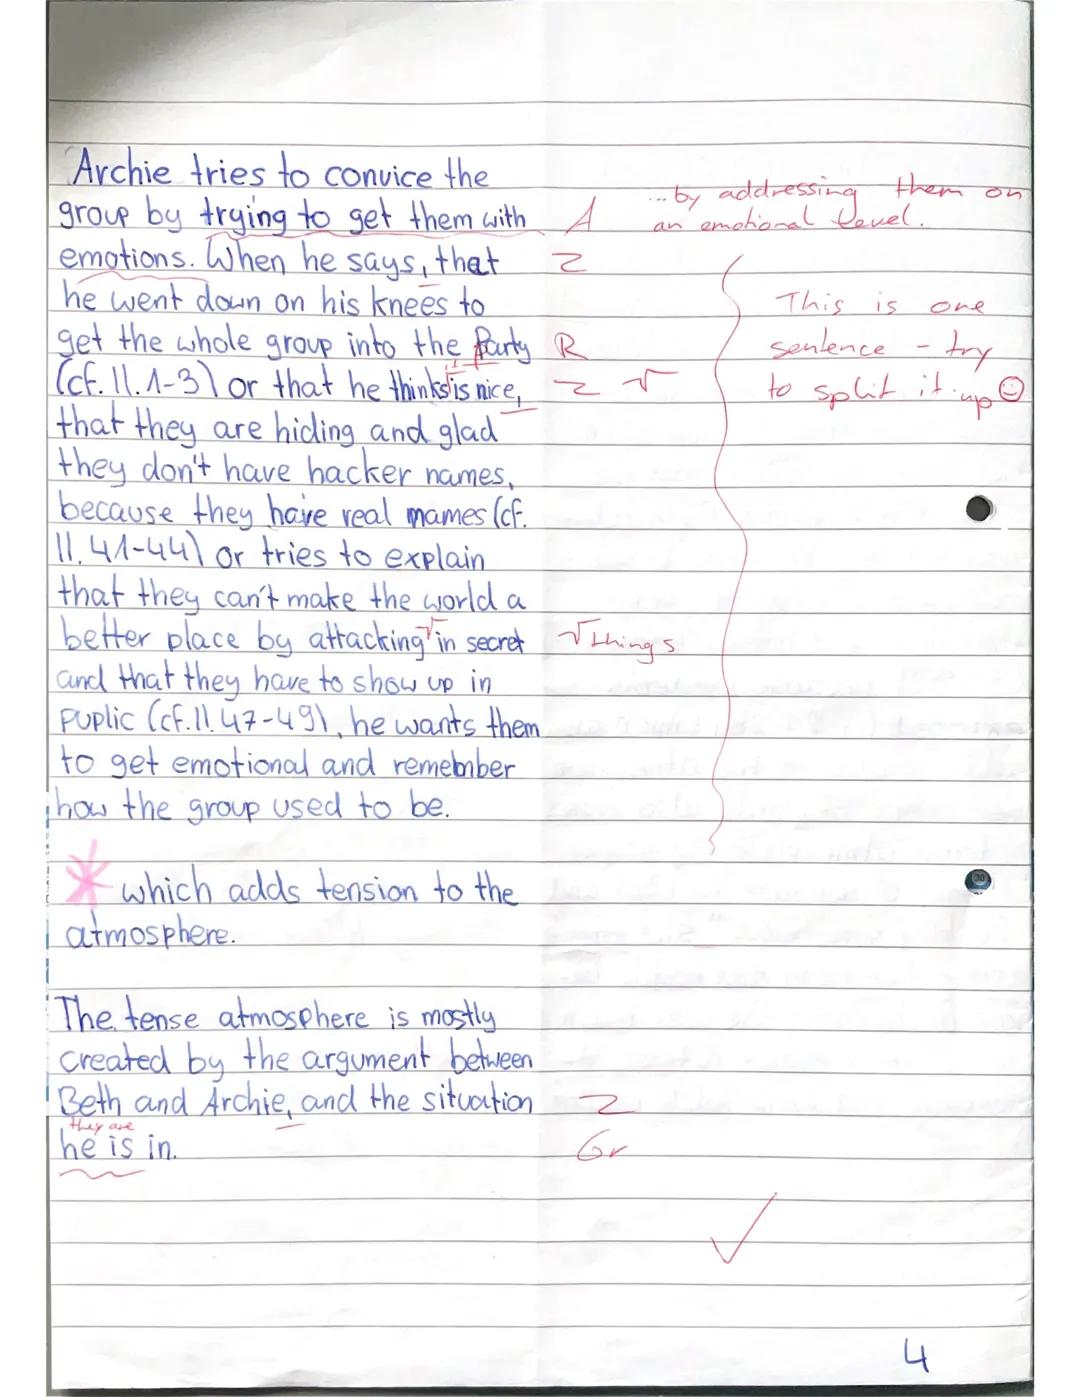 Archie tries to convice the
group by trying to get them with A ...by addressing them on
emotions. When he says, that Z an emotional level.
he went down on his knees to This is one
get the whole group into the Party R sentence - try
(cf. ll. 1-3) or that he thinks it is nice, Z √ to split it up ☺
that they are hiding and glad
they don't have hacker names,
because they have real mames (cf.
ll. 41-44) or tries to explain
that they can't make the world a
better place by attacking √ in secret √ things
and that they have to show up in
puplic (cf. ll. 47-49), he wants them
to get emotional and remember
how the group used to be.
* which adds tension to the
atmosphere.
The tense atmosphere is mostly
created by the argument between
Beth and Archie, and the situation Z
they are
he is in. Gr
4